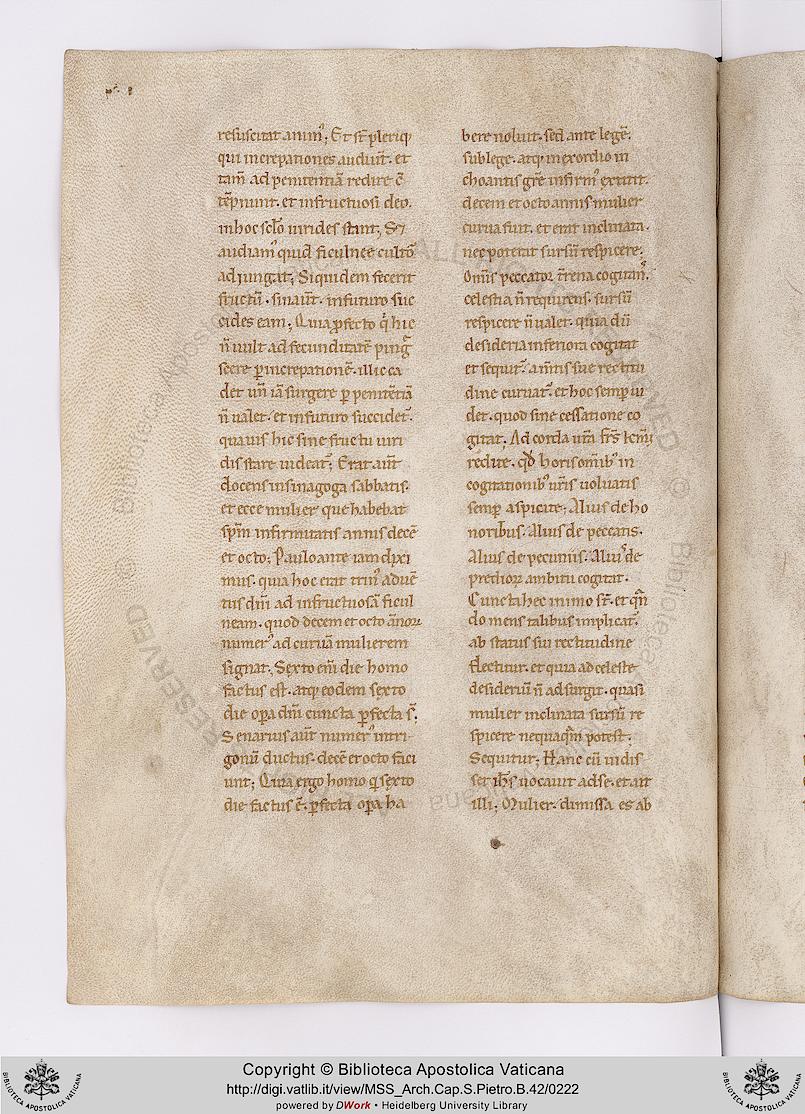 resuscitat animũ; Et st̃ pleriq;
qui increpationes audiũt. et
tam̃ ad penitentiã redire c̃
tẽpnunt. et infructuosi deo.
inhoc sclo uirides stant; S;
audiam᾿ quid ficulnee cultor
adjungat; Siquidem fecerit
fructũ. sinaũt. infuturo suc
cides eam; Quia ꝓfecto q̇ hic
ñ uult ad fecunditatẽ ping
secre ꝑ increpationẽ. illic ca
det uñ iã surgere ꝑ penitẽtiã
ñ ualet. et infuturo succidet᾿.
quauis hic sine fructu uiri
dis stare uideat᾿; Erat aũt
docens insinagoga sabbatis.
et ecce mulier que habebat
sp̃m infirmitatis annis decẽ
et octo; Paulo ante iam dixi
mus. quia hoc erat trin᾿ aduẽ
tus dñi ad infructuosã ficul
neam. quod decem et octo ãnoꝝ
numer᾿ ad curuã mulierem
signat᾿. Sexto eñi die homo
factus est. atq; eodem sexto
die oꝑa dñi cuncta ꝑfecta s̃.
Senarius aũt numer᾿ intri
gonũ ductus. decẽ et octo faci
unt; Quia ergo homo q̇ sexto
die factus ẽ. ꝑfecta oꝑa ha
bere noluit. sed ante legẽ.
sub lege. atq; in exordio in
choantis gr̃e infirm᾿ extitit.
decem et octo annis mulier
curua fuit. et erat inclinata.
nec poterat sursũ respicere;
Omĩs peccator t̃rena cogitans.
celestia ñ requirens. sursũ
respicere ñ ualet. quia dũ
desideria inferiora cogitat
et sequit᾿. a mĩtis sue rectitu
dine curuat᾿. et hoc semꝑ ui
det. quod sine cessatione co
gitat; Ad corda ur̃a fr̃s k̃mi
redite. qđ horis omĩb; in
cogitationib; ur̃is uoluatis
semꝑ aspicite; Alius de ho
norib;. Alius de peccatis.
Alius de pecuniis. Alius de
predioꝝ ambitu cogitat.
Cuncta hec in imo st̃. et qñ
do mens talibus implicat᾿.
ab status sui rectitudine
flectitur. et quia ad celeste
desideriũ ñ adsurgit. quasi
mulier inclinata sursũ re
spicere nequaq̃m potest.
Sequitur; Hanc cũ uidis
set ih̃s uocauit ad se. et ait
illi; Mulier. dimissa es ab
Copyright © Biblioteca Apostolica Vaticana
http://digi.vatlib.it/view/MSS_Arch.Cap.S.Pietro.B.42/0222
powered by DWork • Heidelberg University Library